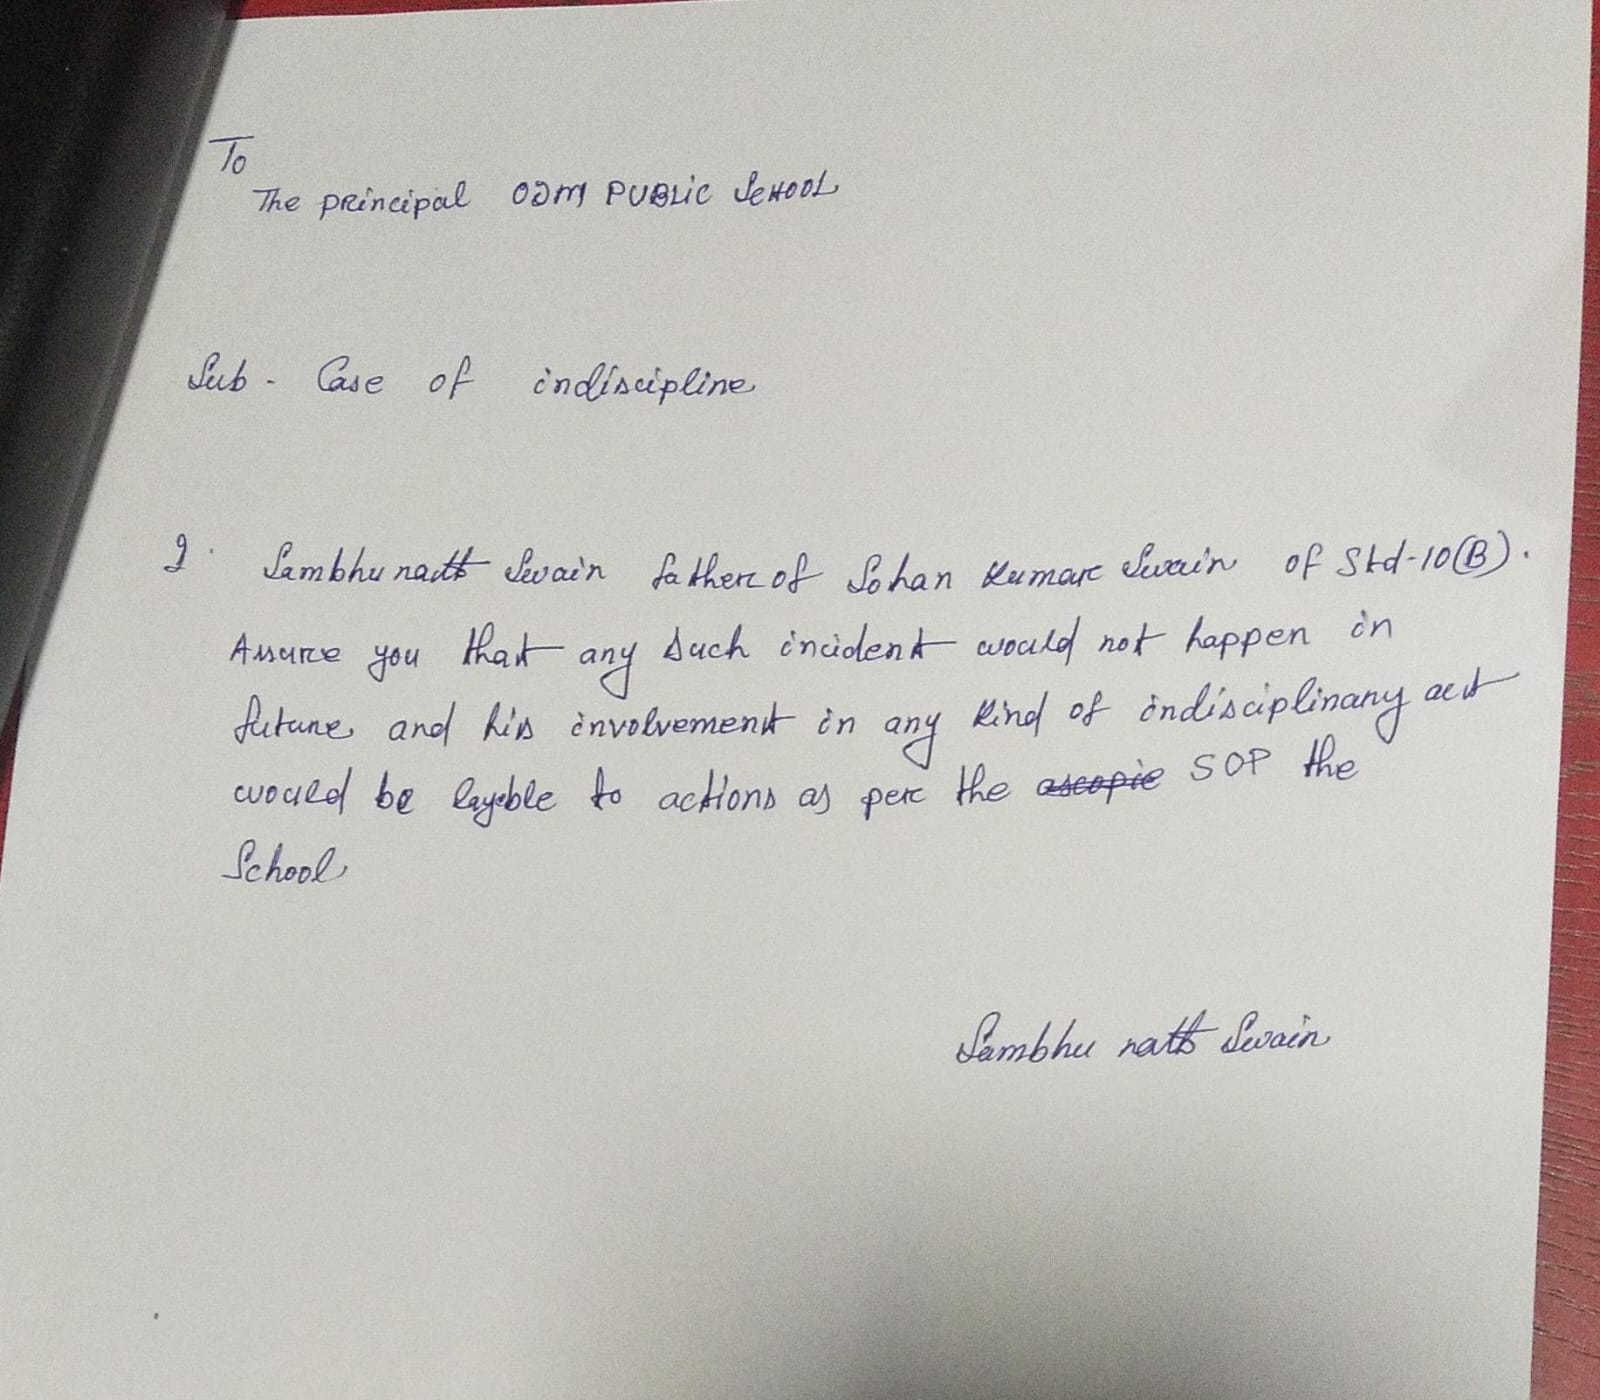 To
The principal ODM PUBLIC SCHOOL
Sub - Case of indiscipline
I. Sambhu nath Swain father of Sohan Kumar Swain of Std-10(B).
Assure you that any such incident would not happen in
future and his involvement in any kind of indisciplinary act
would be layeble to actions as per the ascopie SOP the
School
Sambhu nath Swain